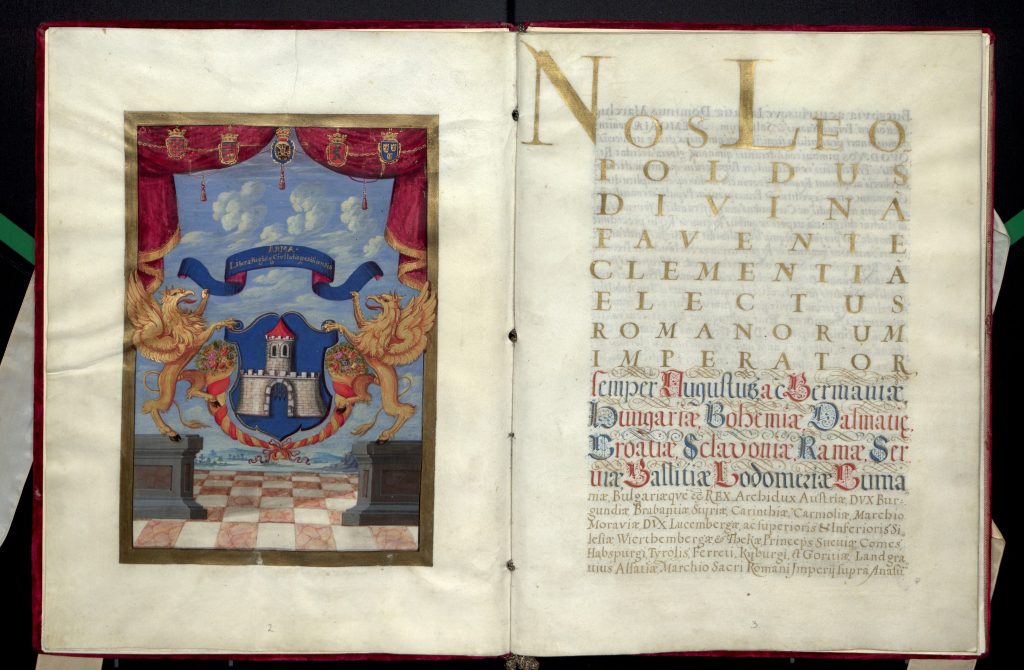 ARMA.
Liberæ Regiæq Civitatis
2
NOS LEO
POLDUS
DIVINA
FAVENTE
CLEMENTIA
ELECTUS
ROMANORUM
IMPERATOR
semper Augustus, ac Germaniæ,
Hungariæ, Bohemiæ, Dalmatiæ,
Croatiæ, Sclavoniæ, Ramæ, Ser
viæ, Gallitiæ Lodomeriæ Cuma
niæ, Bulgariæqve &c̃ REX. Archidux Austriæ DVX Bur-
gundiæ Brabantiæ, Styriæ, Carinthiæ, Carnioliæ, Marchio
Moraviæ, DVX Lucembergæ, ac superioris & Inferioris Si
lesiæ Wierthembergæ & Thekæ, Princeps Sueviæ, Comes
Habspurgi, Tyrolis, Ferreti, Kyburgi, et Goritiæ Landgra
vius Alsatiæ, Marchio Sacri Romani Imperij supra Anasũ
3